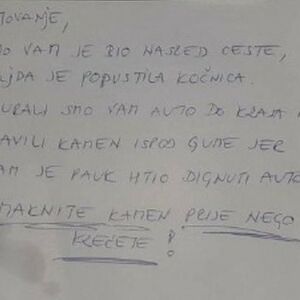 TOVANJE,
O VAM JE BIO NASRED CESTE,
LJDA JE POPUSTILA KOČNICA.
URALI SMO VAM AUTO DO KRAJA
AVILI KAMEN ISPOD GUME JER
AM JE PAUK HTIO DIGNUTI AUTO
MAKNITE KAMEN PRIJE NEGO
KREĆETE!